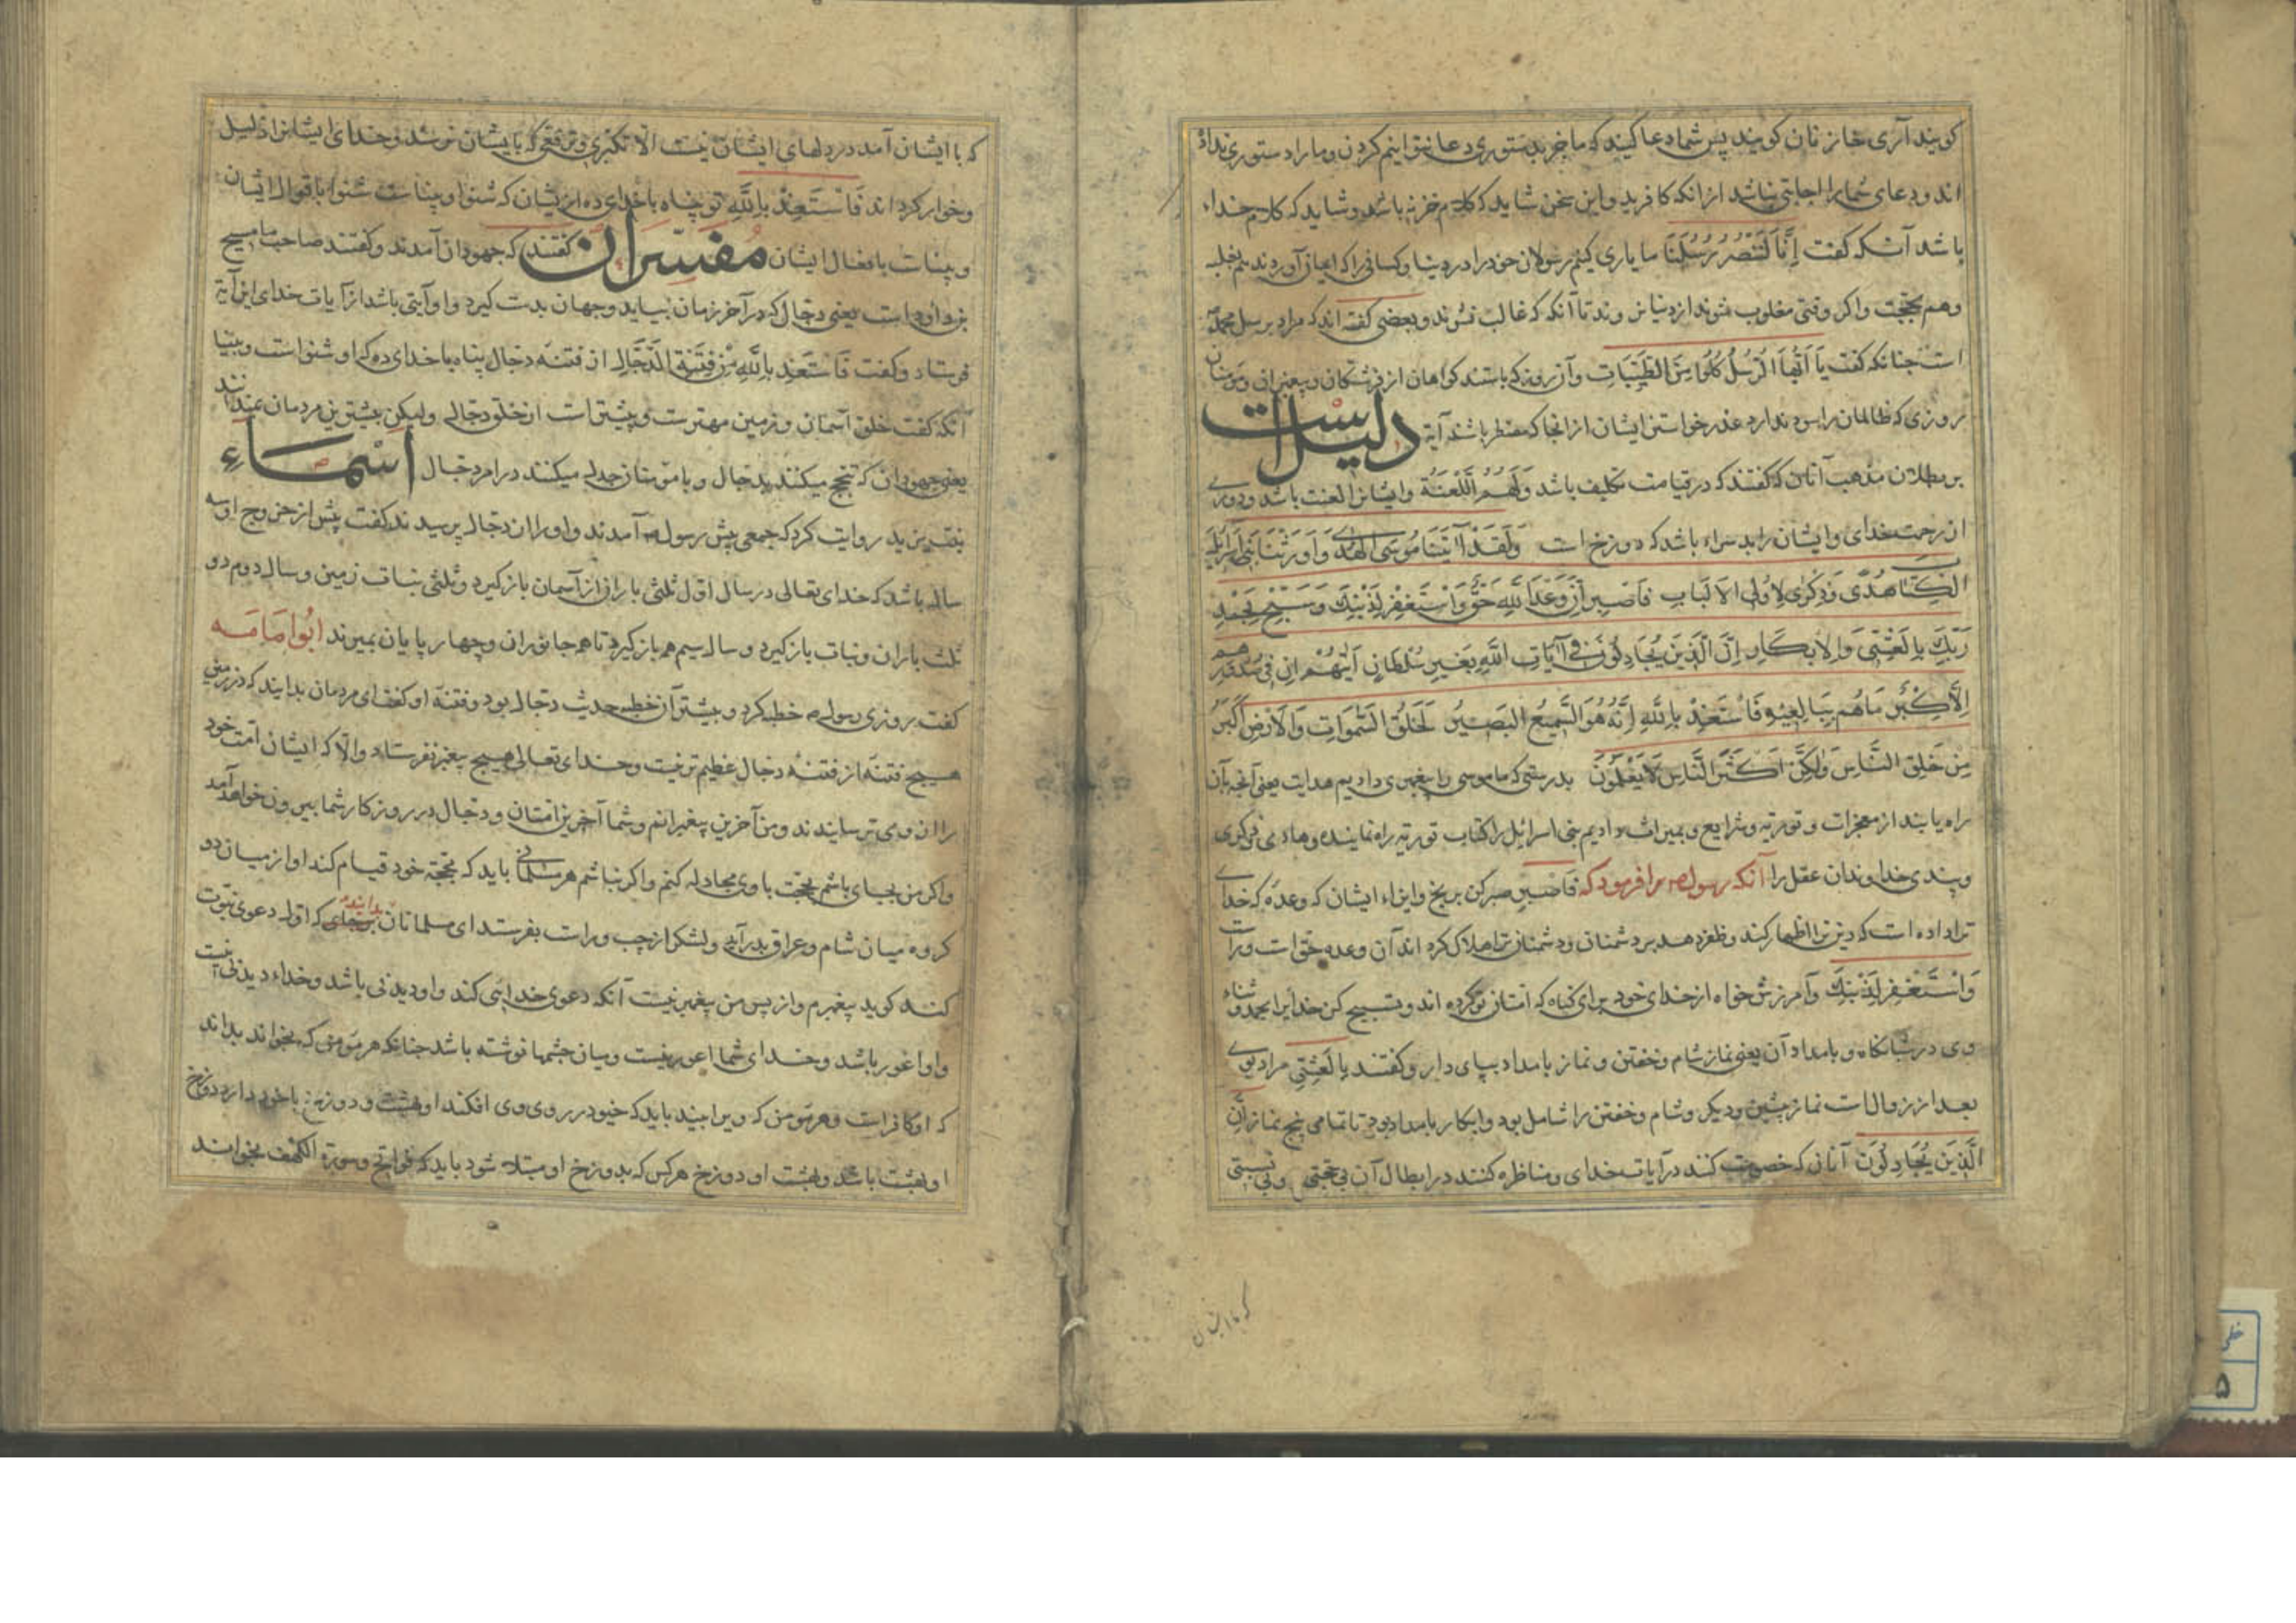 کویند آری خازنان کویند پس شما دعا کنید که ما جز بدستوری دعا نتوانیم کردن و ما را دستوری نداده
اند و دعای شما را اجابتی نباشد از انکه کافرید و این سخن شاید که کلام خزنه باشد و شاید که کلام خداء
باشد آنکه کفت اِنَّا لَنَنْصُرُ رُسُلَنَا ما یاری کنیم رسولان خود را در دنیا و کسانی را که ایمان آوردند هم بغلبه
وهم بحجت واکر وقتی مغلوب شوند از دنیا نروند تا آنکه که غالب نشوند و بعضی کفته اند که مراد برسل محمد
است جنانکه کفت یَا اَیُّهَا الرُّسُلُ کُلُوا مِنَ الطَّیِّبَاتِ و آن روز که باستند کواهان از فرشتکان و پیغبران و مومنان
روزی که ظالمان را سود ندارد عذر خواستن ایشان از انجا که مضطر باشند آیة دلیل است
بر بطلان مذهب آنان که کفتند که در قیامت تکلیف باشد وَلَهُمُ اللَّعْنَةُ و ایشانرا لعنت باشد ودوری
از رحمت خدای و ایشان را بد سراء باشد که دوزخ است وَلَقَدْ آتَیْنَا مُوسَی الْهُدَی وَاَوْرَثْنَا بَنِی اِسْرَائِیلَ
الْکِتَابَ هُدًی وَذِکْرَی لِاُولِی الْاَلْبَابِ فَاصْبِرْ اِنَّ وَعْدَ اللَّهِ حَقٌّ وَاسْتَغْفِرْ لِذَنْبِكَ وَسَبِّحْ بِحَمْدِ
رَبِّكَ بِالْعَشِیِّ وَالْاِبْکَارِ اِنَّ الَّذِینَ یُجَادِلُونَ فِی آیَاتِ اللَّهِ بِغَیْرِ سُلْطَانٍ اَتَیهُمْ اِنْ فِی صُدُورِهِمْ
اِلَّا کِبْرٌ مَا هُمْ بِبَالِغِیهِ فَاسْتَعِذْ بِاللَّهِ اِنَّهُ هُوَ السَّمِیعُ الْبَصِیرُ لَخَلْقُ السَّمَوَاتِ وَالْاَرْضِ اَکْبَرُ
مِنْ خَلْقِ النَّاسِ وَلَکِنَّ اَکْثَرَ النَّاسِ لَا یَعْلَمُونَ بدرستی که ما موسی را پیغمبری دادیم هدایت یعنی آنجه بآن
راه یابند از معجزات و توریة و شرایع و بمیراث دادیم بنی اسرائیل را کتاب توریة راه نماینده وهادی ذکری
وپندی خداوندان عقل را آنکه رسول را فرمود که فَاصْبِرْ صبر کن بر رنج و ایذاء ایشان که وعدۀ که خدای
ترا داده است که دین ترا اظهار کند و ظفر دهد بر دشمنان و دشمنان ترا هلاک کرداند آن وعده حق است وراست
وَاسْتَغْفِرْ لِذَنْبِكَ وآمرزش خواه از خدای خود برای کناه که امتان تو کرده اند و تسبیح کن خدایرا بحمد و ثناء
وی در شبانکاه و بامداد آن یعنی نماز شام وخفتن و نماز بامداد بپای دار وکفتند بِالْعَشِیِّ مراد بوی
بعد از زوال است نماز پشین ودیکر وشام وخفتن را شامل بود وابکار بامداد بود تا تمامی پنج نماز اِنَّ
الَّذِینَ یُجَادِلُونَ آنان که خصومت کنند در آیات خدای ومناظره کنند در ابطال آن بی حجتی و بی
که با ایشان
که با ایشان آمد در دلهای ایشان نیست الا تکبری وترفعی که بایشان نرسد وخدای ایشانرا ذلیل
وخوار کرداند فَاسْتَعِذْ بِاللَّهِ تو پناه با خدای ده از ایشان که شنوا وبیناست شنوا باقوال ایشان
وبیناست بافعال ایشان مفسّران کفتند که جهودان آمدند وکفتند صاحب ما مسیح
بن داود است یعنی دجال که در آخر زمان بیاید وجهان بدست کیرد واو آیتی باشد از آیات خدای این آیة
فرستاد وکفت فَاسْتَعِذْ بِاللَّهِ مِنْ فِتْنَةِ الدَّجَّالِ از فتنۀ دجال پناه با خدای ده که او شنواست وبینا
آنکه کفت خلق آسمان وزمین مهترست وبیشترست از خلق دجال ولیکن بیشترین مردمان نمیدانند
یعنی جهودان که تبجح میکنند بدجال وبا مؤمنان جدل میکنند در امر دجال اَسْمَاءِ
بنت یزید روایت کرد که جمعی پیش رسول آمدند واورا از دجال پرسیدند کفت پیش از خروج او سه
سال باشد که خدای تعالی در سال اول ثلثی باران از آسمان بازکیرد وثلثی نبات زمین وسال دوم دو
ثلث باران ونبات بازکیرد وسال سیم همه بازکیرد تا همه جانوران وچهارپایان بمیرند ابُواُمَامَه
کفت روزی رسول خطبه کرد وبیشتر آن خطبه حدیث دجال بود وفتنۀ او کفت ای مردمان بدانید که در زمین
هیچ فتنۀ از فتنۀ دجال عظیم تر نیست وخدای تعالی هیچ پیغبر نفرستاد والّا که ایشان امت خود
را از وی ترسانیدند ومن آخرین پیغبرانم وشما آخرین امتان ودجال در روزکار شما بیرون خواهد آمد
واکر من بجای باشم بحجت با وی مجادله کنم واکر نباشم هر مسلمانی باید که بحجة خود قیام کند او از میان دو
کروه میان شام وعراق بدرآید ولشکر از چپ وراست بفرستد ای مسلمانان بدانید که اول دعوی نبوت
کند کوید پیغبرم واز پس من پیغمبر نیست آنکه دعوی خدائی کند واو دیدنی باشد وخداء دیدنی نیست
واو اعور باشد وخدای شما اعور نیست ومیان چشمها نوشته باشد جنانکه هر مؤمن که بخواند بداند
که او کافر است وهر مؤمن که ویرا بیند باید که خیو در روی وی افکند او بهشت ودوزخ باخود دارد دوزخ
او بهشت باشد وبهشت او دوزخ هرکس که بدوزخ او مبتلا شود باید که فواتح سورة الکهف بخواند
۵